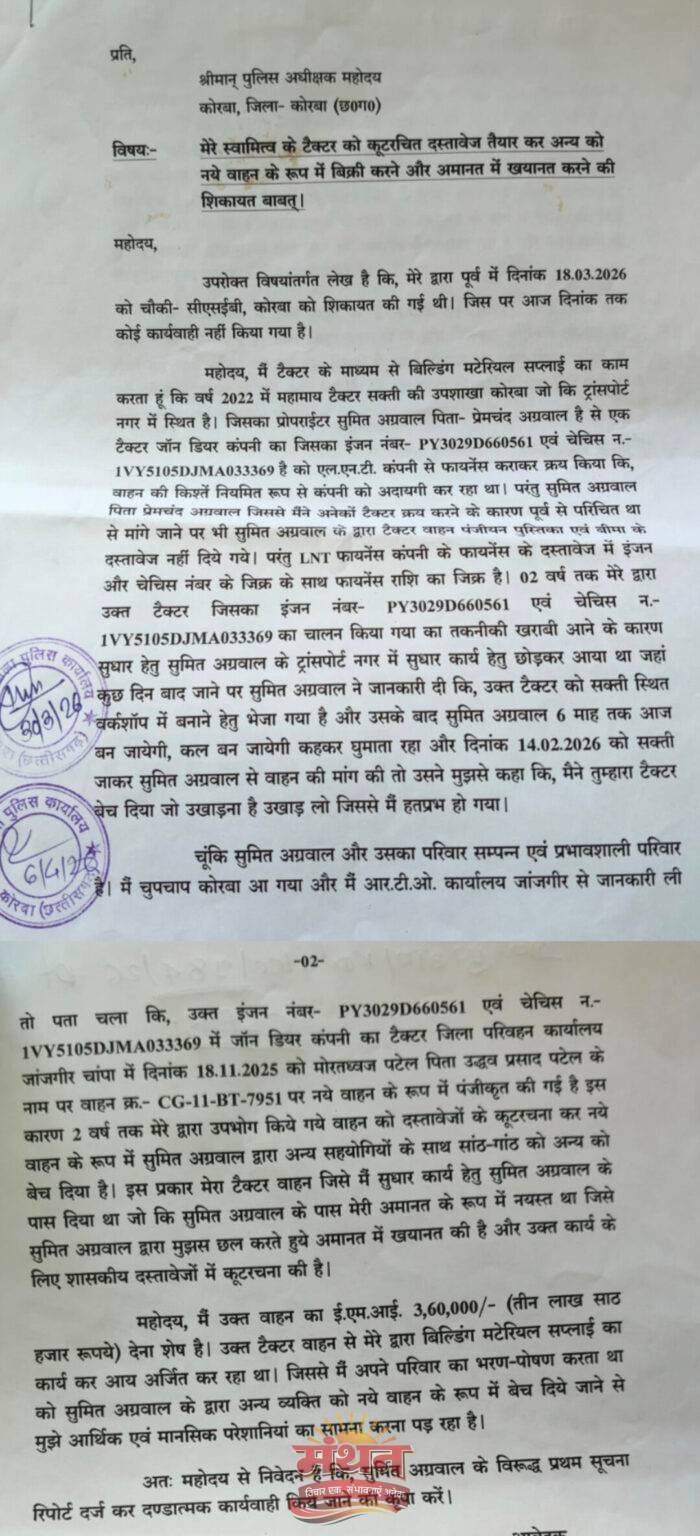 प्रति,
श्रीमान् पुलिस अधीक्षक महोदय
कोरबा, जिला- कोरबा (छ0ग0)
विषयः- मेरे स्वामित्व के टैक्टर को कूटरचित दस्तावेज तैयार कर अन्य को
नये वाहन के रूप में बिक्री करने और अमानत में खयानत करने की
शिकायत बाबत्।
महोदय,
उपरोक्त विषयांतर्गत लेख है कि, मेरे द्वारा पूर्व में दिनांक 18.03.2026
को चौकी- सीएसईबी, कोरबा को शिकायत की गई थी। जिस पर आज दिनांक तक
कोई कार्यवाही नहीं किया गया है।
महोदय, मैं टैक्टर के माध्यम से बिल्डिंग मटेरियल सप्लाई का काम
करता हूं कि वर्ष 2022 में महामाय टैक्टर सक्ती की उपशाखा कोरबा जो कि ट्रांसपोर्ट
नगर में स्थित है। जिसका प्रोपराईटर सुमित अग्रवाल पिता- प्रेमचंद अग्रवाल है से एक
टैक्टर जॉन डियर कंपनी का जिसका इंजन नंबर- PY3029D660561 एवं चेचिस न.-
1VY5105DJMA033369 है को एल.एन.टी. कंपनी से फायनेंस कराकर क्रय किया कि,
वाहन की किश्तें नियमित रूप से कंपनी को अदायगी कर रहा था। परंतु सुमित अग्रवाल
पिता प्रेमचंद अग्रवाल जिससे मैंने अनेकों टैक्टर क्रय करने के कारण पूर्व से परिचित था
से मांगे जाने पर भी सुमित अग्रवाल के द्वारा टैक्टर वाहन पंजीयन पुस्तिका एवं बीमा के
दस्तावेज नहीं दिये गये। परंतु LNT फायनेंस कंपनी के फायनेंस के दस्तावेज में इंजन
और चेचिस नंबर के जिक्र के साथ फायनेंस राशि का जिक्र है। 02 वर्ष तक मेरे द्वारा
उक्त टैक्टर जिसका इंजन नंबर- PY3029D660561 एवं चेचिस न.-
1VY5105DJMA033369 का चालन किया गया का तकनीकी खराबी आने के कारण
सुधार हेतु सुमित अग्रवाल के ट्रांसपोर्ट नगर में सुधार कार्य हेतु छोड़कर आया था जहां
कुछ दिन बाद जाने पर सुमित अग्रवाल ने जानकारी दी कि, उक्त टैक्टर को सक्ती स्थित
वर्कशॉप में बनाने हेतु भेजा गया है और उसके बाद सुमित अग्रवाल 6 माह तक आज
बन जायेगी, कल बन जायेगी कहकर घुमाता रहा और दिनांक 14.02.2026 को सक्ती
जाकर सुमित अग्रवाल से वाहन की मांग की तो उसने मुझसे कहा कि, मैने तुम्हारा टैक्टर
बेच दिया जो उखाड़ना है उखाड़ लो जिससे मैं हतप्रभ हो गया।
चूंकि सुमित अग्रवाल और उसका परिवार सम्पन्न एवं प्रभावशाली परिवार
है। मैं चुपचाप कोरबा आ गया और मैं आर.टी.ओ. कार्यालय जांजगीर से जानकारी ली
पुलिस कार्यालय
30/3/26
(छत्तीसगढ़)
पुलिस कार्यालय
6/4/26
कोरबा (छत्तीसगढ़)
-02-
तो पता चला कि, उक्त इंजन नंबर- PY3029D660561 एवं चेचिस न.-
1VY5105DJMA033369 में जॉन डियर कंपनी का टैक्टर जिला परिवहन कार्यालय
जांजगीर चांपा में दिनांक 18.11.2025 को मोरतध्वज पटेल पिता उद्धव प्रसाद पटेल के
नाम पर वाहन क्र.- CG-11-BT-7951 पर नये वाहन के रूप में पंजीकृत की गई है इस
कारण 2 वर्ष तक मेरे द्वारा उपभोग किये गये वाहन को दस्तावेजों के कूटरचना कर नये
वाहन के रूप में सुमित अग्रवाल द्वारा अन्य सहयोगियों के साथ सांठ-गांठ को अन्य को
बेच दिया है। इस प्रकार मेरा टैक्टर वाहन जिसे मैं सुधार कार्य हेतु सुमित अग्रवाल के
पास दिया था जो कि सुमित अग्रवाल के पास मेरी अमानत के रूप में नयस्त था जिसे
सुमित अग्रवाल द्वारा मुझस छल करते हुये अमानत में खयानत की है और उक्त कार्य के
लिए शासकीय दस्तावेजों में कूटरचना की है।
महोदय, मैं उक्त वाहन का ई.एम.आई. 3,60,000/- (तीन लाख साठ
हजार रूपये) देना शेष है। उक्त टैक्टर वाहन से मेरे द्वारा बिल्डिंग मटेरियल सप्लाई का
कार्य कर आय अर्जित कर रहा था। जिससे मैं अपने परिवार का भरण-पोषण करता था
को सुमित अग्रवाल के द्वारा अन्य व्यक्ति को नये वाहन के रूप में बेच दिये जाने से
मुझे आर्थिक एवं मानसिक परेशानियां का सामना करना पड़ रहा है।
अतः महोदय से निवेदन है कि, सुमित अग्रवाल के विरूद्ध प्रथम सूचना
रिपोर्ट दर्ज कर दण्डात्मक कार्यवाही किये जाने की कृपा करें।
मंथन
विचार एक, संभावनाएं अनेक